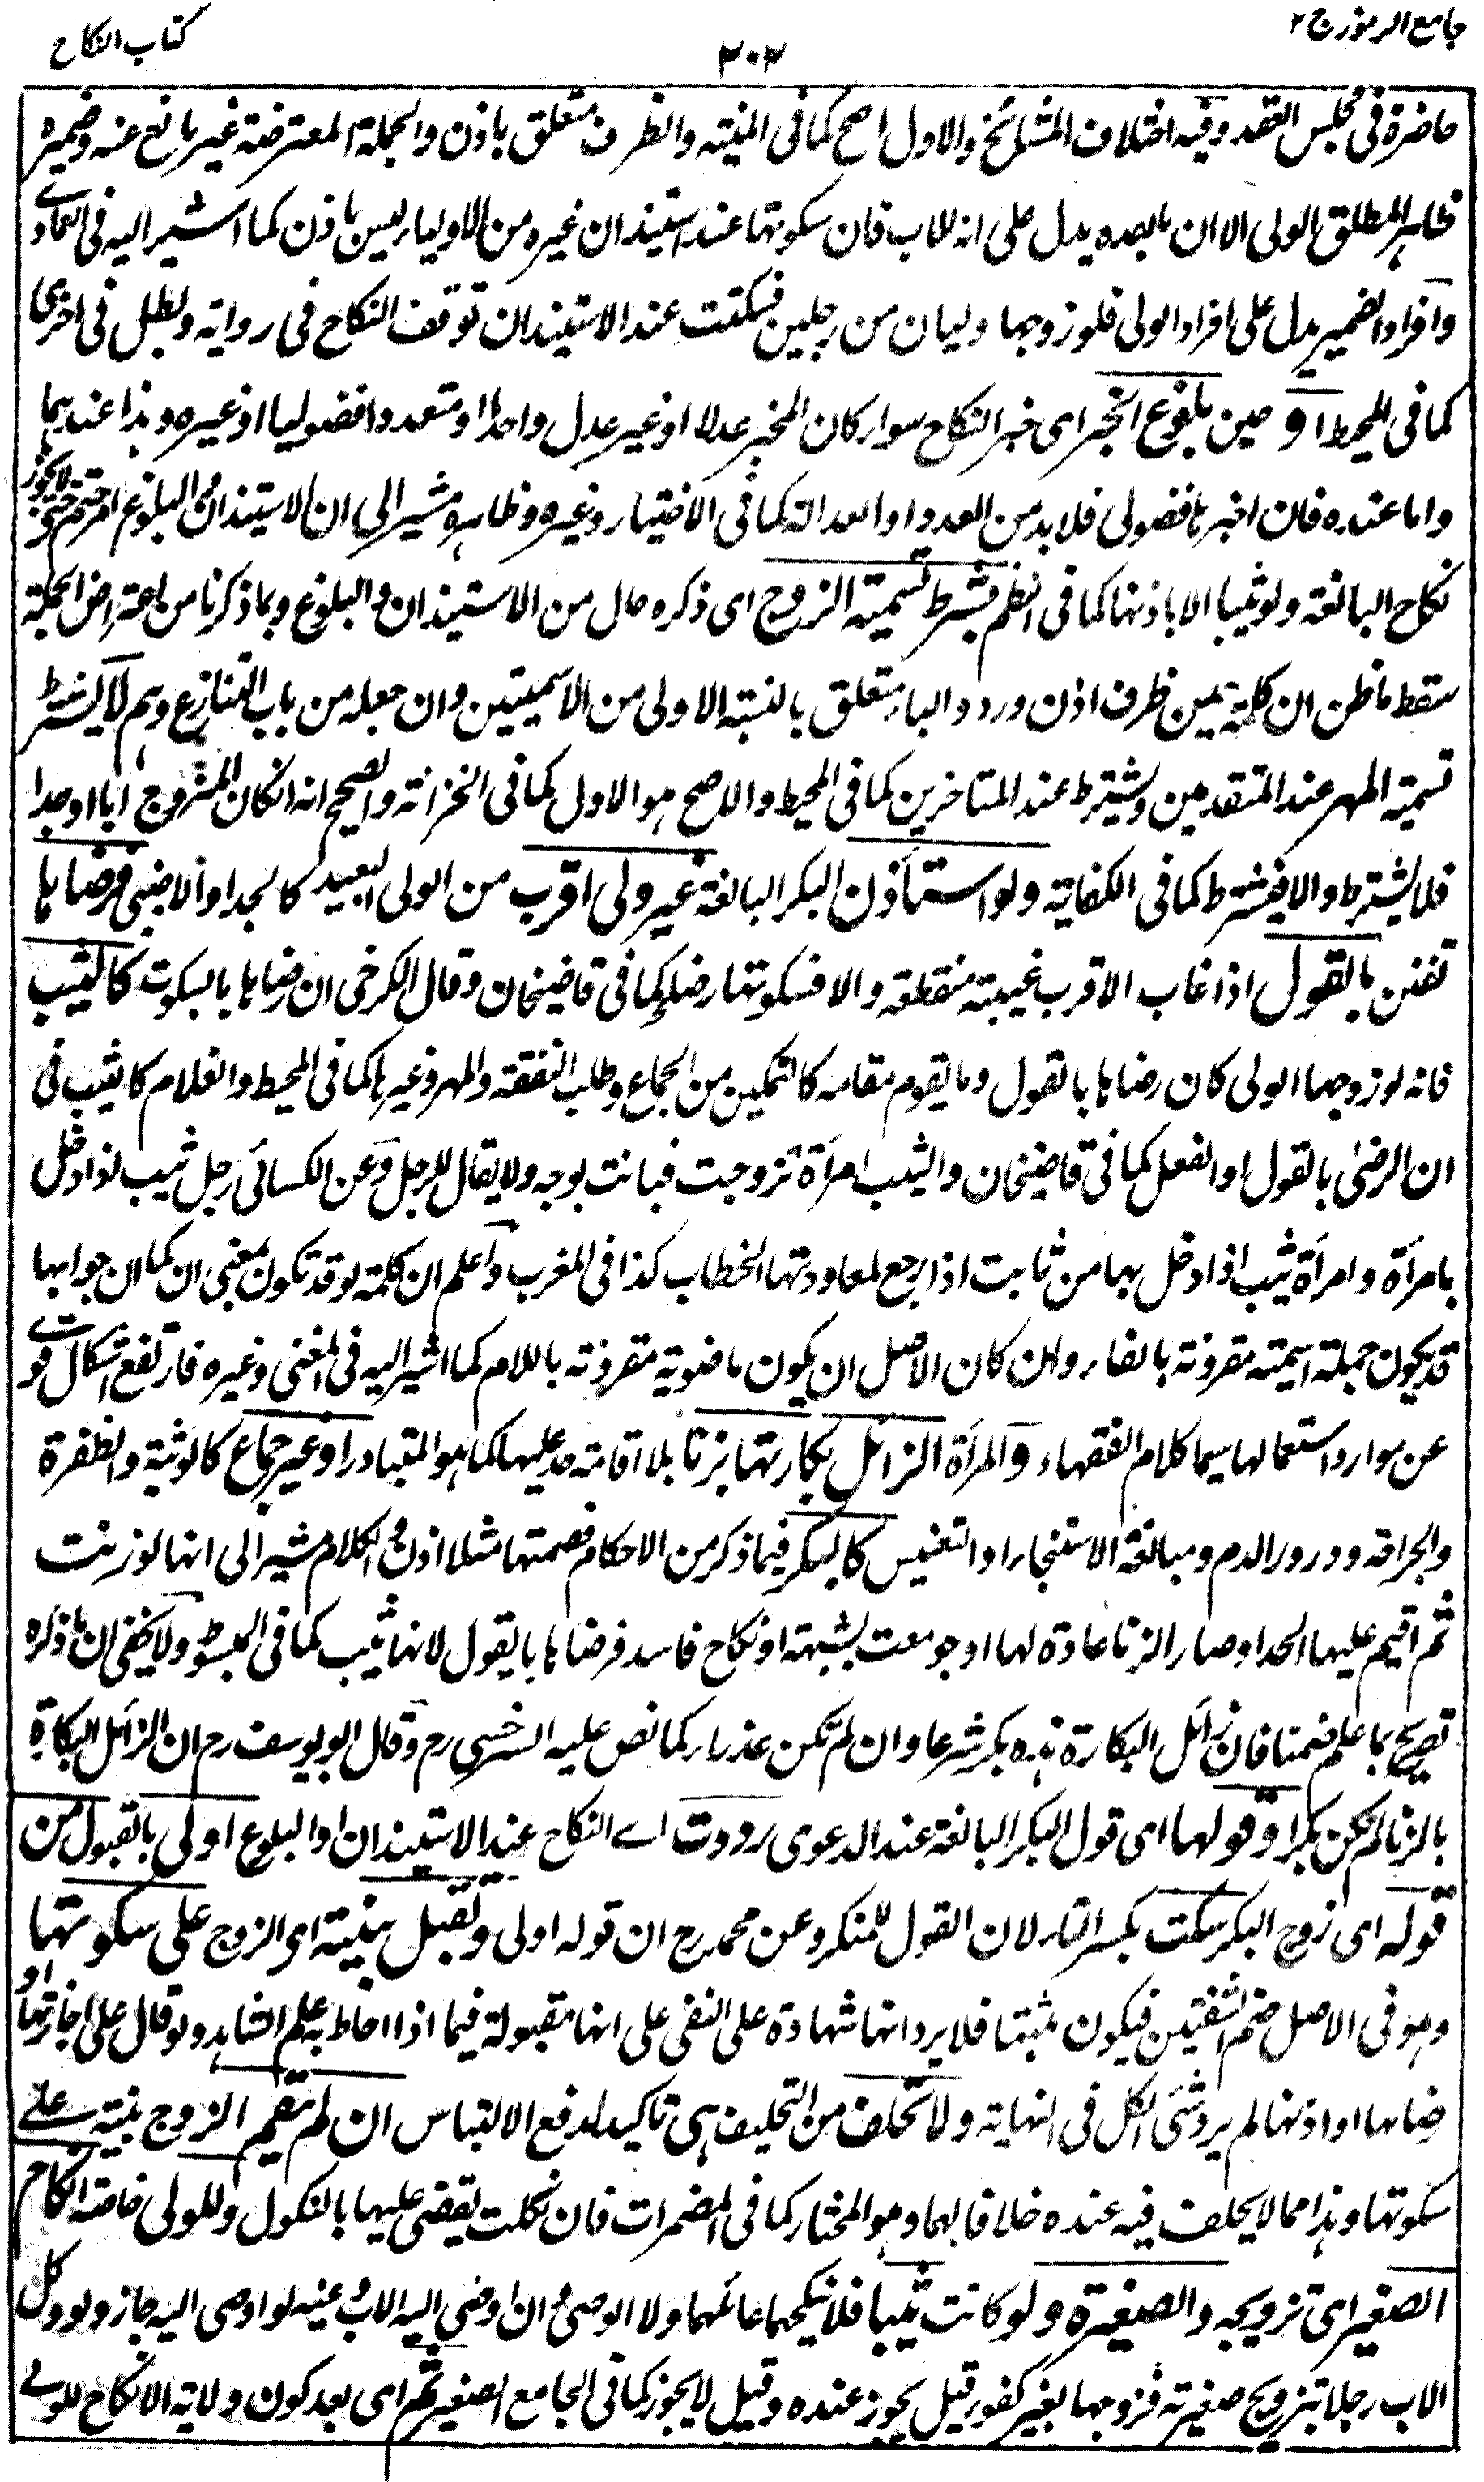 جامع الرموز ج ٢
٣٠٢
كتاب النكاح
حاضرة في مجلس العقد وفيه اختلاف المشائخ والاول اصح كما في المنية والظرف متعلق باذن والجملة المعترضة غير مانع عنه وضميره
ظاهر لمطلق الولي الا ان ما بعده يدل على انه للاب فان سكوتها عند استيذان غيره من الاولياء ليس باذن كما اشير اليه في العمادي
وافراد الضمير يدل على افراد الولي فلو زوجها وليان من رجلين فسكتت عند الاستيذان توقف النكاح في رواية وبطل في اخرى
كما في المحيط او حين بلوغ الخبر اي خبر النكاح سواء كان المخبر عدلا او غير عدل واحدا او متعددا فضوليا او غيره وهذا عندهما
واما عنده فان اخبرها فضولي فلا بد من العدد او العدالة كما في الاختيار وغيره وظاهره مشير الى ان الاستيذان او البلوغ امر حتم حتى لا يجوز
نكاح البالغة ولو ثيبا الا باذنها كما في النظم بشرط تسمية الزوج اي ذكره حال من الاستيذان والبلوغ وبما ذكرنا من اعتراض الجملة
سقط ما ظن ان كلمة حين ظرف اذن ورد والباء متعلق بالنسبة الاولى من الاسميتين وان جعله من باب التنازع وهم لا يشترط
تسمية المهر عند المتقدمين ويشترط عند المتاخرين كما في المحيط والاصح هو الاول كما في الخزانة والصحيح انه ان كان المزوج ابا او جدا
فلا يشترط والا فيشترط كما في الكفاية ولو استأذن البكر البالغة غير ولي اقرب من الولي البعيد كالجد او الاجنبي فرضاها
تفنن بالقول اذا غاب الاقرب غيبة منقطعة والا فسكوتها رضاء كما في قاضيخان وقال الكرخي ان رضاها بالسكوت كالثيب
فانه لو زوجها الولي كان رضاها بالقول وما يقوم مقامه كالتمكين من الجماع وطلب النفقة والمهر وغيرها كما في المحيط والغلام كالثيب في
ان الرضى بالقول او الفعل كما في قاضيخان والثيب امرأة تزوجت فبانت بوجه ولا يقال للرجل وعن الكسائي رجل ثيب اذا دخل
بامرأة وامرأة ثيب اذا دخل بها من ثابت اذا رجع لمعاودتها الخطاب كذا في المغرب واعلم ان كلمة لو قد تكون بمعنى ان كما ان جوابها
قد يكون جملة اسمية مقرونة بالفاء وان كان الاصل ان يكون ماضوية مقرونة باللام كما اشير اليه في المغني وغيره فارتفع اشكال قوي
عن موارد استعمالها سيما كلام الفقهاء والمرأة الزائل بكارتها بزنا بلا اقامة حد عليها كما هو المتبادر او غير جماع كالوثبة والظفرة
والجراحة ودرور الدم ومبالغة الاستنجاء او التعنيس كالبكر فيما ذكر من الاحكام فصمتها مثلا اذن والكلام مشير الى انها لو زنت
ثم اقيم عليها الحد او صار الزنا عادة لها او جومعت بشبهة او نكاح فاسد فرضاها بالقول لانها ثيب كما في المبسوط ولا يخفى ان ما ذكره
تصريح بما علم ضمنا فان زائل البكارة هذه بكر شرعا وان لم تكن عذراء كما نص عليه السرخسي رح وقال ابو يوسف رح ان الزائل البكارة
بالزنا لم تكن بكرا وقولها اي قول البكر البالغة عند الدعوى رددت اے النكاح عند الاستيذان او البلوغ اولى بالقبول من
قوله اي زوج البكر سكت بكسر التاء لان القول للمنكر وعن محمد رح ان قوله اولى وتقبل بينة اي الزوج على سكوتها
وهو في الاصل ضم الشفتين فيكون مثبتا فلا يرد انها شهادة على النفي على انها مقبولة فيما اذا احاط به علم الشاهد ولو قال على اجازتها او
رضاها او اذنها لم يرد شئ الكل في النهاية ولا تحلف من التحليف هي تاكيد لدفع الالتباس ان لم تقم الزوج بينة علے
سكوتها وهذا مما لا يحلف فيه عنده خلافا لهما وهو المختار كما في المضمرات فان نكلت يقضى عليها بالنكول وللولي خاصة انكاح
الصغير اي تزويجه والصغيرة ولو كانت ثيبا فلا ينكحهما عائلهما ولا الوصي وان اوصى اليه الاب وعنه لو اوصى اليه جاز ولو وكل
الاب رجلا بتزويج صغيرته فزوجها بغير كفو قيل يجوز عنده وقيل لا يجوز كما في الجامع الصغير ثم اي بعد كون ولاية الانكاح للولے